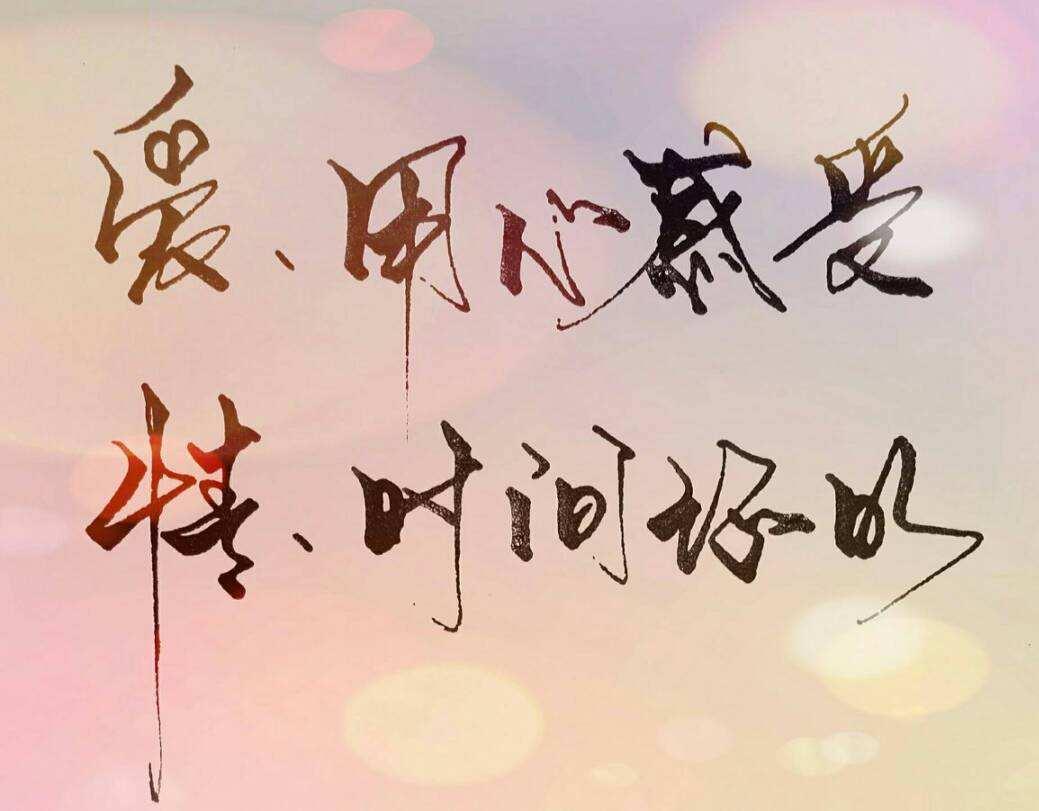 爱、用心感受
情、时间证明